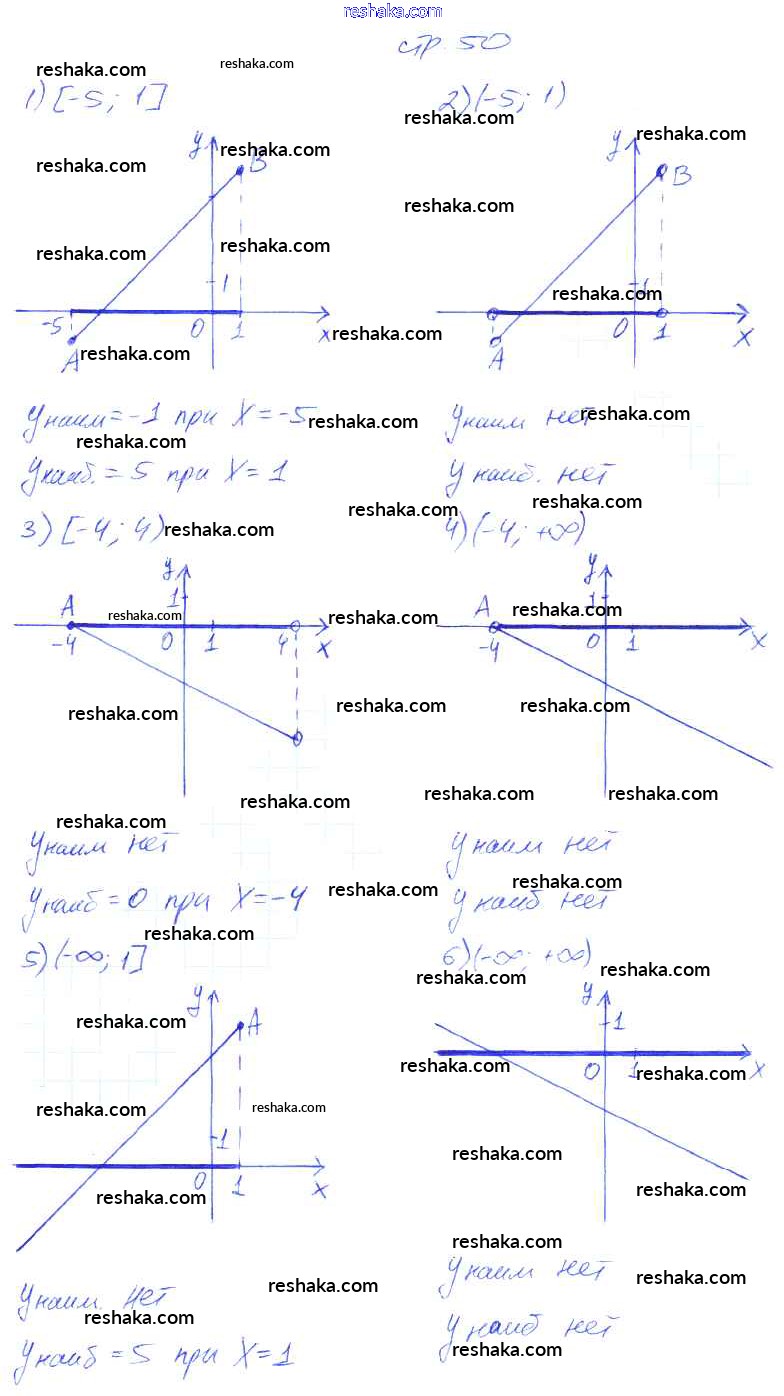 reshaka.com
стр. 50
reshaka.com reshaka.com
1) [-5; 1]
2) (-5; 1)
reshaka.com
reshaka.com
y
B
-5
A
0
1
1
x
reshaka.com
reshaka.com
reshaka.com
reshaka.com
reshaka.com
reshaka.com
y
B
A
0
1
1
x
reshaka.com
reshaka.com
reshaka.com
yнаим = -1 при x = -5
reshaka.com
yнаиб. = 5 при x = 1
yнаим нет
reshaka.com
yнаиб. нет
reshaka.com
reshaka.com
reshaka.com
3) [-4; 4)
reshaka.com
4) (-4; +∞)
y
A
1
-4
0
1
4
x
reshaka.com
reshaka.com
reshaka.com
reshaka.com
y
A
1
-4
0
1
x
reshaka.com
reshaka.com
reshaka.com
reshaka.com
reshaka.com
yнаим нет
yнаиб = 0 при x = -4
reshaka.com
yнаим нет
reshaka.com
yнаиб нет
reshaka.com
5) (-∞; 1]
6) (-∞; +∞)
reshaka.com
reshaka.com
y
A
1
0
1
x
reshaka.com
reshaka.com
reshaka.com
reshaka.com
y
1
0
1
x
reshaka.com
reshaka.com
reshaka.com
reshaka.com
reshaka.com
yнаим. нет
reshaka.com
reshaka.com
yнаиб = 5 при x = 1
yнаим нет
reshaka.com
yнаиб нет
reshaka.com